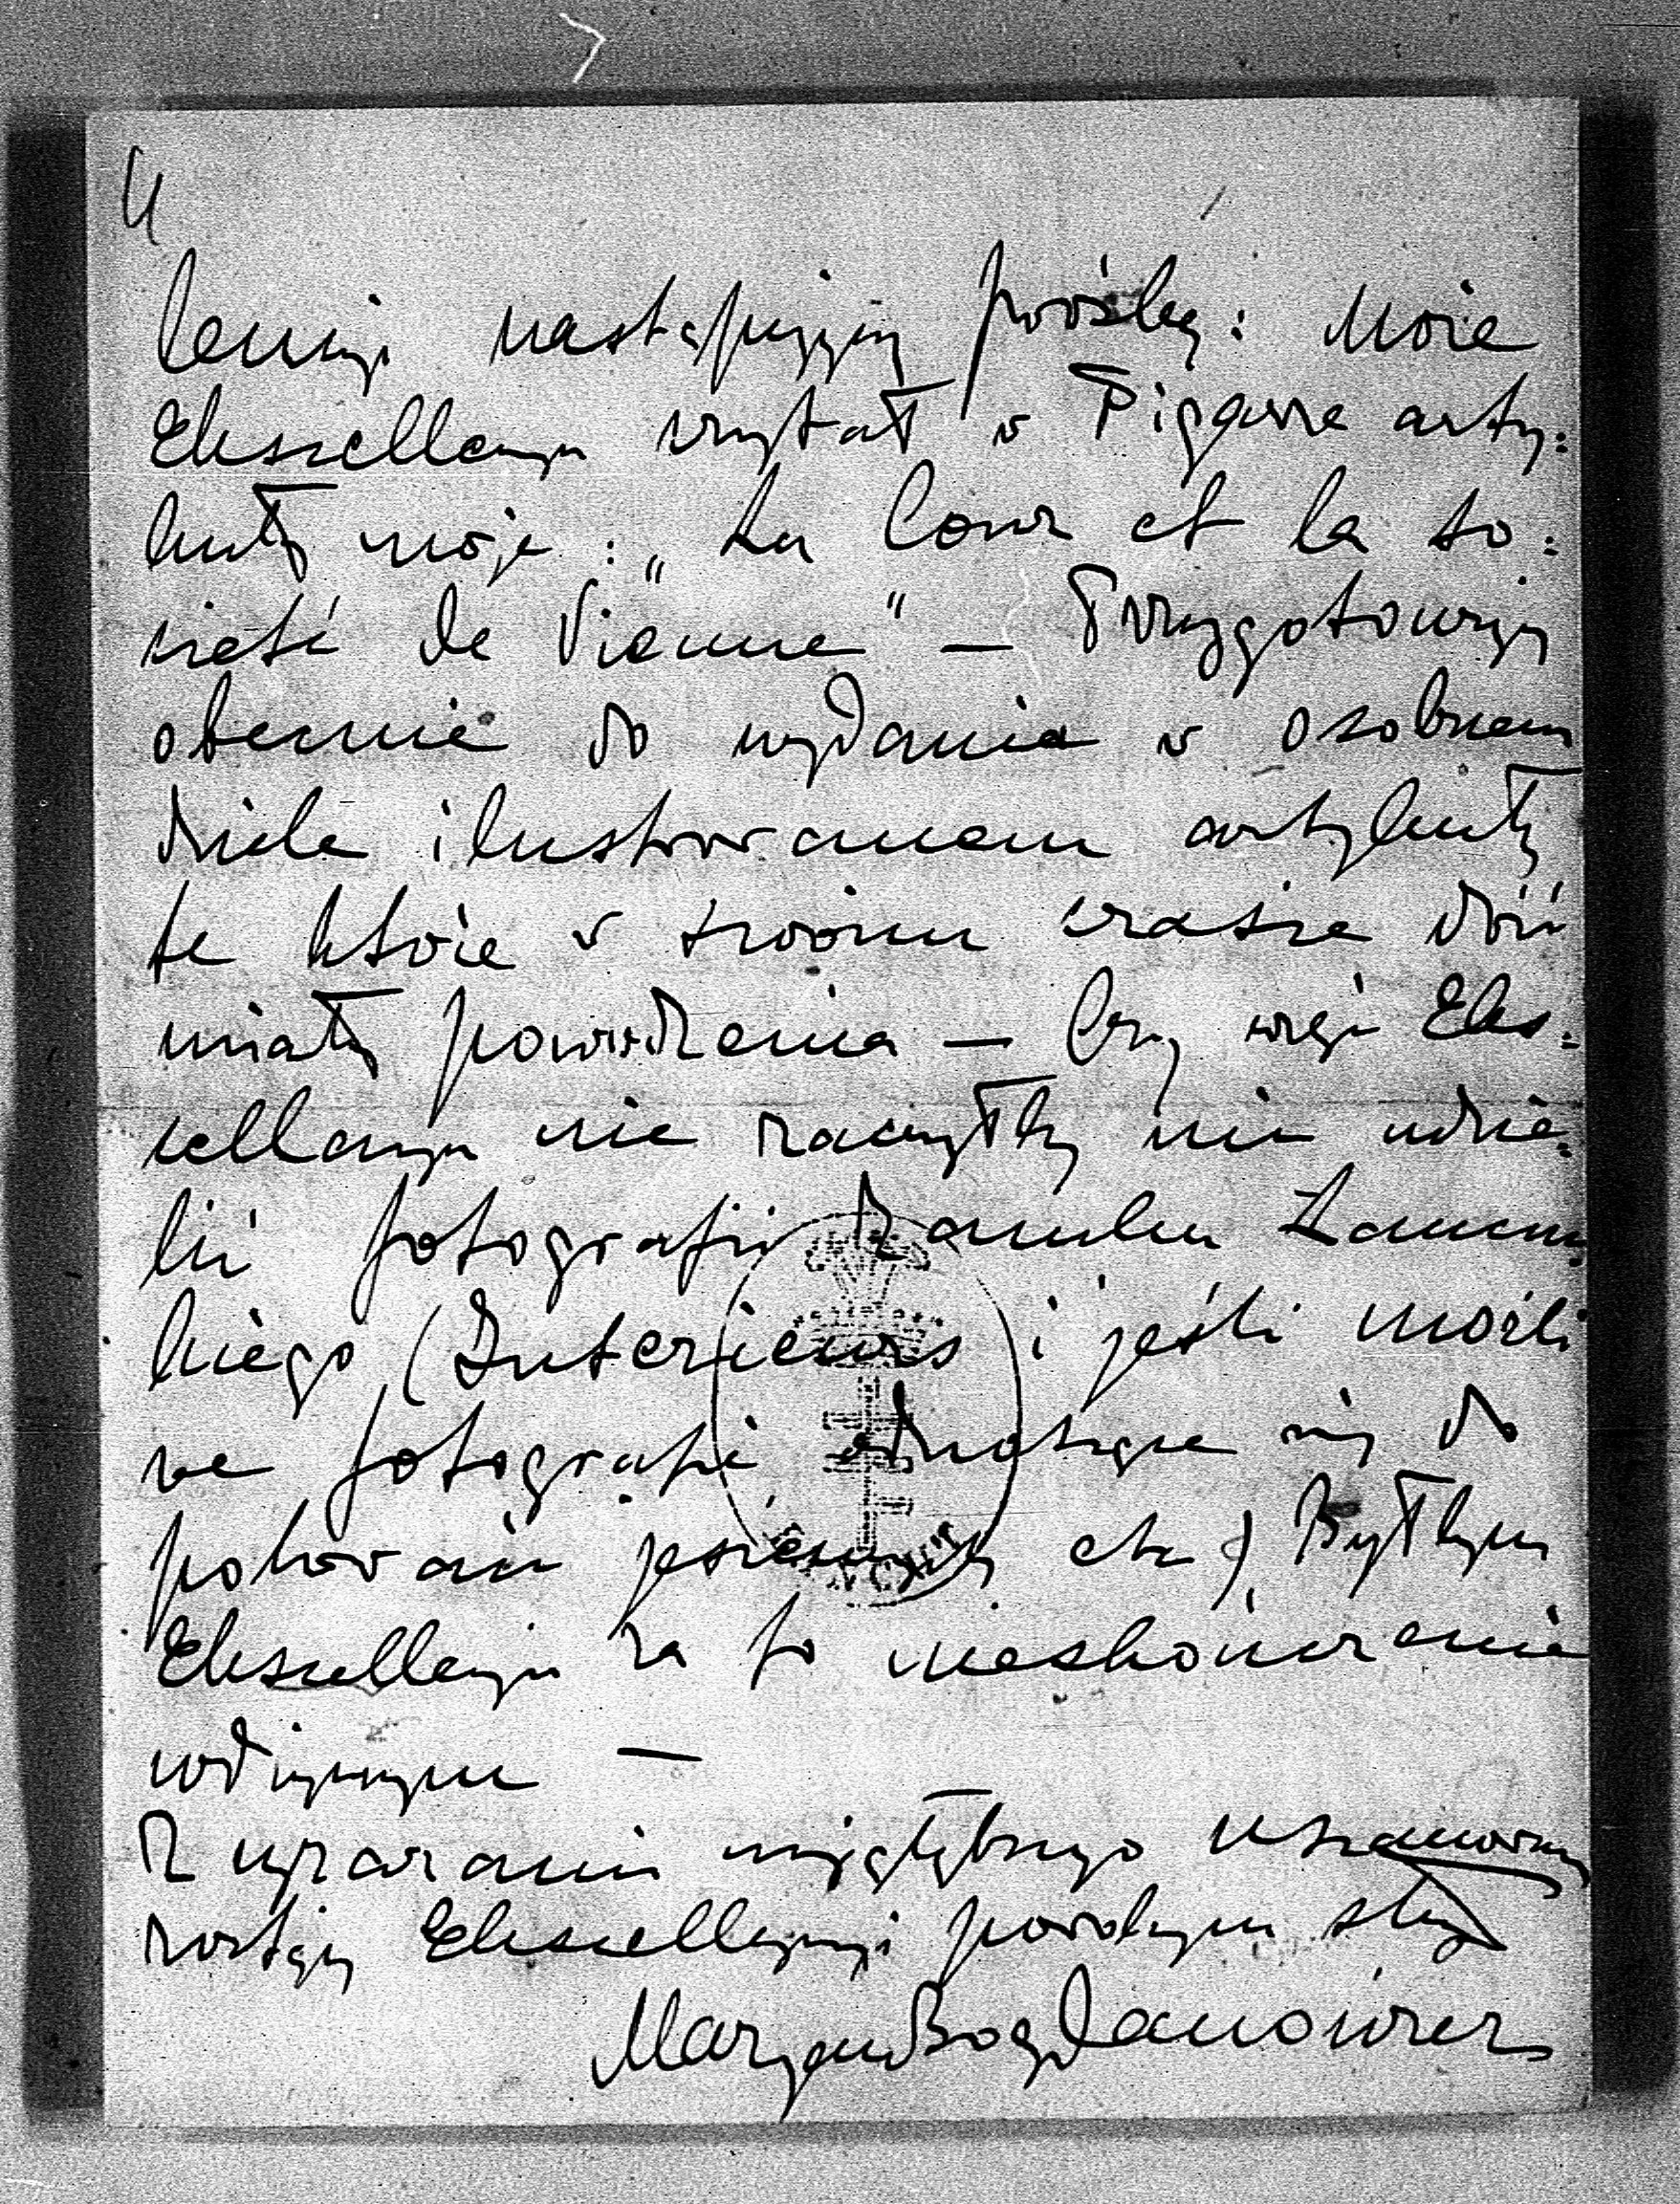 4
lencyi następującą prośbę: Może
Ekscellencya czytał w Figarze arty:
kuły moje: „La Cour et la so:
cieté de Vienne" — Przygotowuję
obecnie do wydania w osobnem
dziele ilustrowanem artykuły
te które w swoim czasie dość
miały powodzenia — Czy więc Eks:
cellencya nie raczyłby mi udzie:
lić fotografii Zamku Łańcuc
kiego (Interieurs i jeśli możli
we fotografie odnoszące się do
polowań jesiennych etc) Byłbym
Ekscellencyi za to nieskończenie
wdzięcznym —
Z wyrazami najgłębszego uszanowania
zostaję Ekscellencyi powolnym sługą
Maryan Bogdanowicz